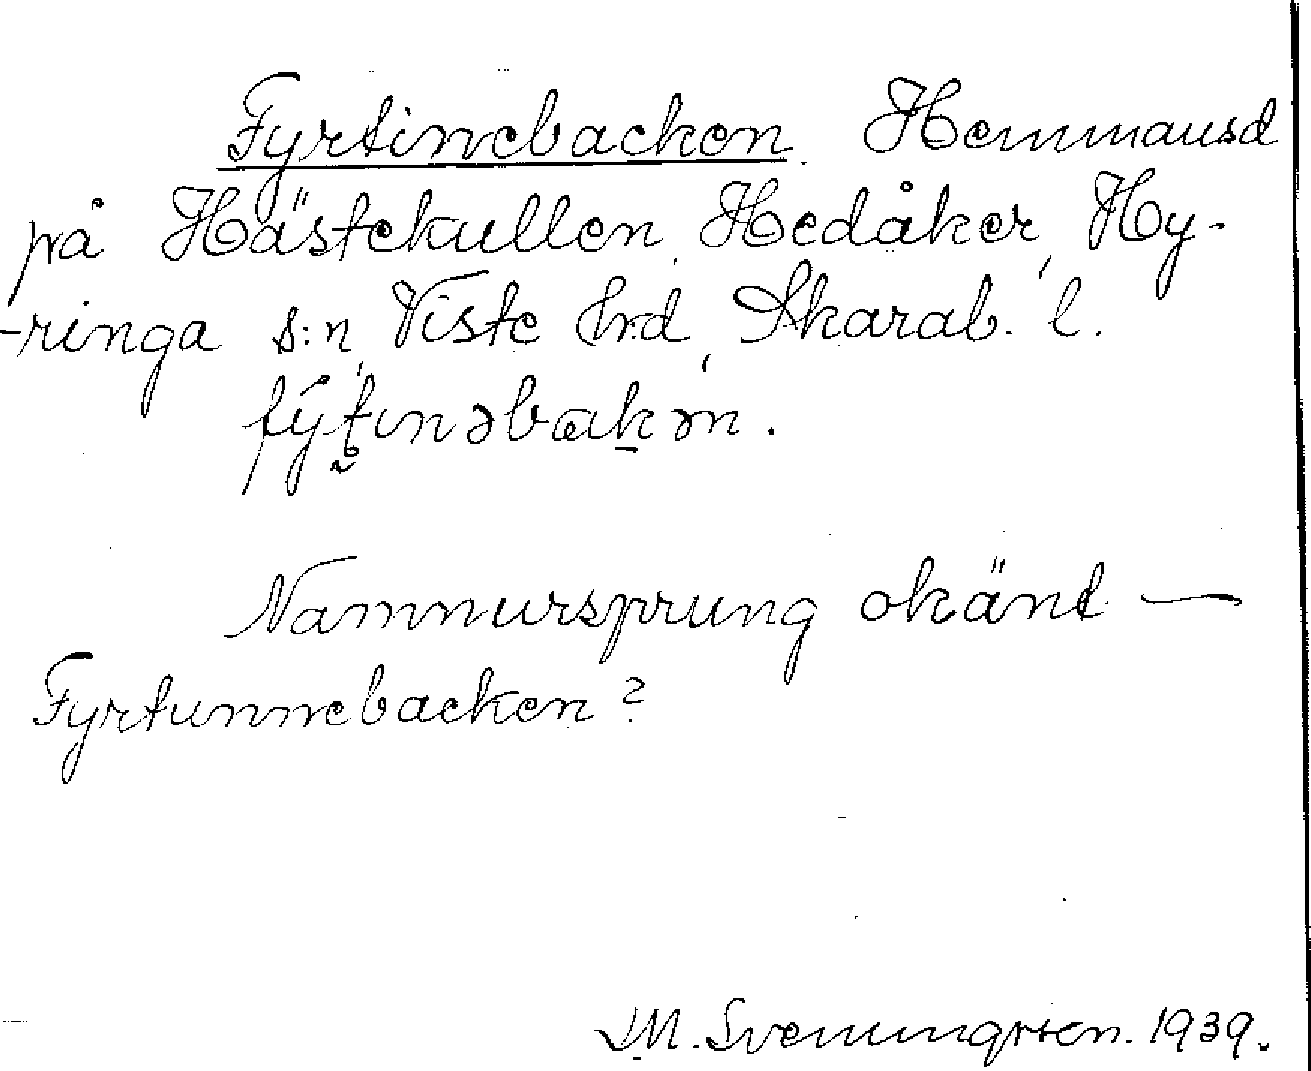 Fyrtinebacken. Hemmansd
på Hästekullen, Hedåker, Hy-
-ringa s:n, Viste hrd, Skarab. l.
fýt̬ınəbak̠ən.
Namnursprung okänt —
Fyrtunnebacken?
J.M. Svenungsson. 1939.